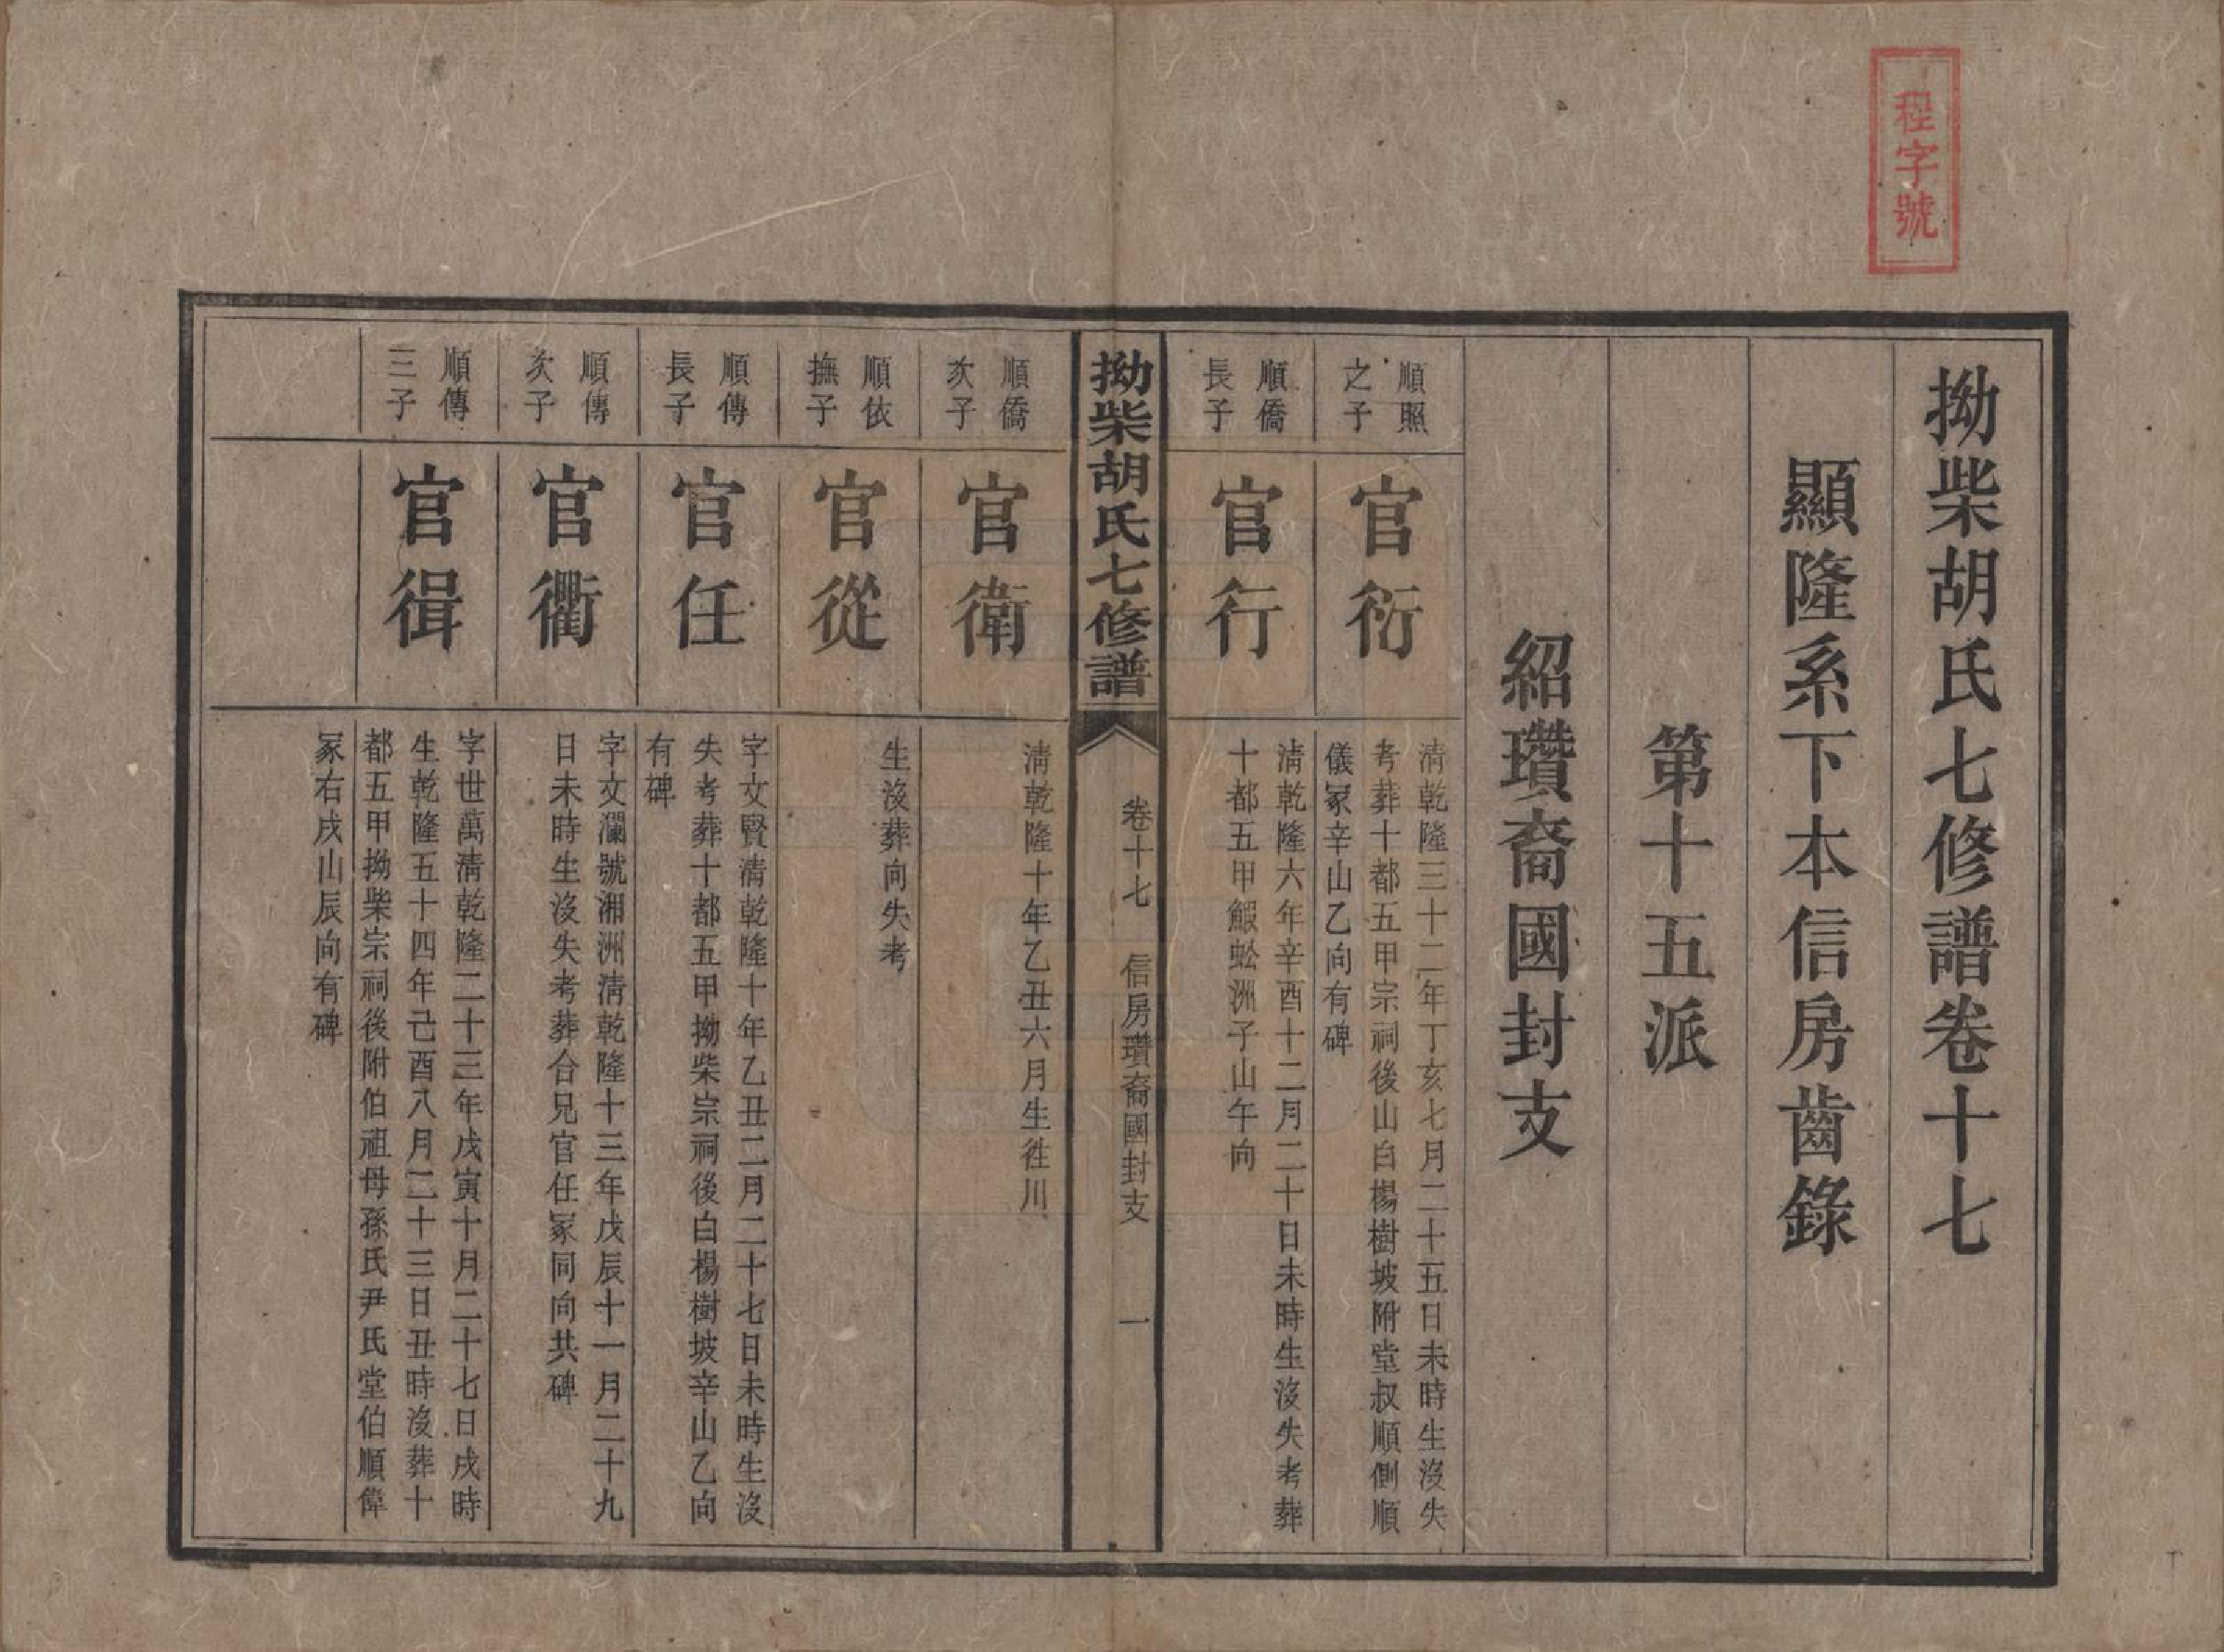 程字號
拗柴胡氏七修譜卷十七
顯隆系下本信房齒錄
第十五派
紹瓚裔國封支
順照
之子
官衍
清乾隆三十二年丁亥七月二十五日未時生沒失
考葬十都五甲宗祠後山白楊樹坡附堂叔順側順
儀冢辛山乙向有碑
順僑
長子
官行
清乾隆六年辛酉十二月二十日未時生沒失考葬
十都五甲鰕蚣洲子山午向
拗柴胡氏七修譜
卷十七
信房瓚裔國封支
一
順僑
次子
官衛
清乾隆十年乙丑六月生徃川
順依
撫子
官從
生沒葬向失考
順傳
長子
官任
字文賢清乾隆十年乙丑二月二十七日未時生沒
失考葬十都五甲拗柴宗祠後白楊樹坡辛山乙向
有碑
順傳
次子
官衢
字文瀾號湘洲清乾隆十三年戊辰十一月二十九
日未時生沒失考葬合兄官任冢同向共碑
順傳
三子
官緝
字世萬清乾隆二十三年戊寅十月二十七日戌時
生乾隆五十四年己酉八月二十三日丑時沒葬十
都五甲拗柴宗祠後附伯祖母孫氏尹氏堂伯順偉
冢右戌山辰向有碑